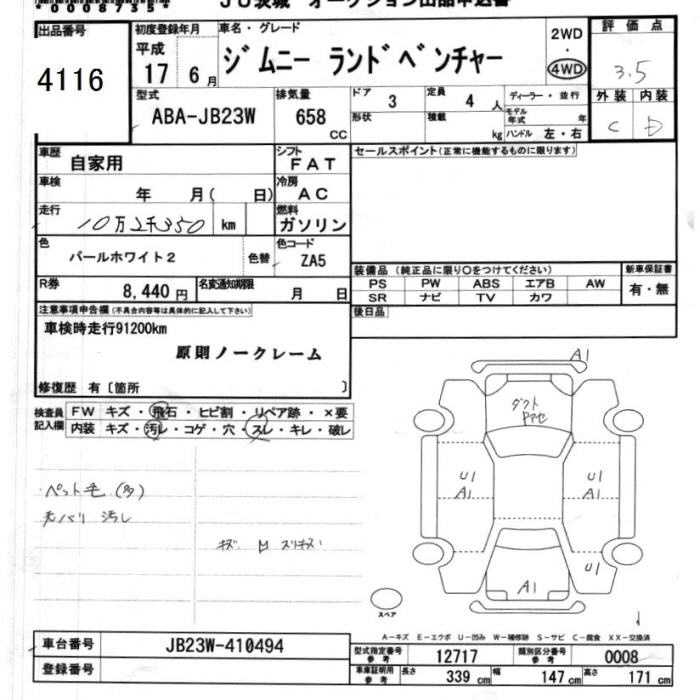 *00087​35*
JU茨城 オークション出品申込書
出品番号
4116
初度登録年月
平成
17 6月
車名・グレード
ジムニー ランドベンチャー
2WD
・
4WD
評価点
3.5
型式
ABA-JB23W
排気量
658
CC
ドア
3
形状
定員
4 人
積載
kg
ディーラー・並行
モデル年式 年
ハンドル 左・右
外装 内装
C D
車歴
自家用
シフト
FAT
セールスポイント(正常に機能するものに限ります)
車検
年 月( 日)
冷房
AC
走行
10万2千350 km
燃料
ガソリン
色
パールホワイト2
色替
色コード
ZA5
装備品(純正品に限り○をつけてください)
PS PW ABS エアB AW
SR ナビ TV カワ
新車保証書
有・無
R券
8,440円
名変通知期限
月 日
後日品
注意事項申告欄(不具合内容等は具体的に記入して下さい)
車検時走行91200km
原則ノークレーム
修復歴 有〔箇所 〕
検査員記入欄
FW キズ・飛石・ヒビ割・リペア跡・×要
内装 キズ・汚レ・コゲ・穴・スレ・キレ・破レ
・ペット毛(多)
毛バリ 汚し
キズ
A1
ダクト
U1
A1
U1
A1
U1
A1
スペア
A-キズ E-エクボ U-凹み W-補修跡 S-サビ C-腐食 XX-交換済
車台番号
JB23W-410494
登録番号
型式指定番号 参考
12717
類別区分番号 参考
0008
車庫証明用 参考
長さ 339 cm 幅 147 cm 高さ 171 cm